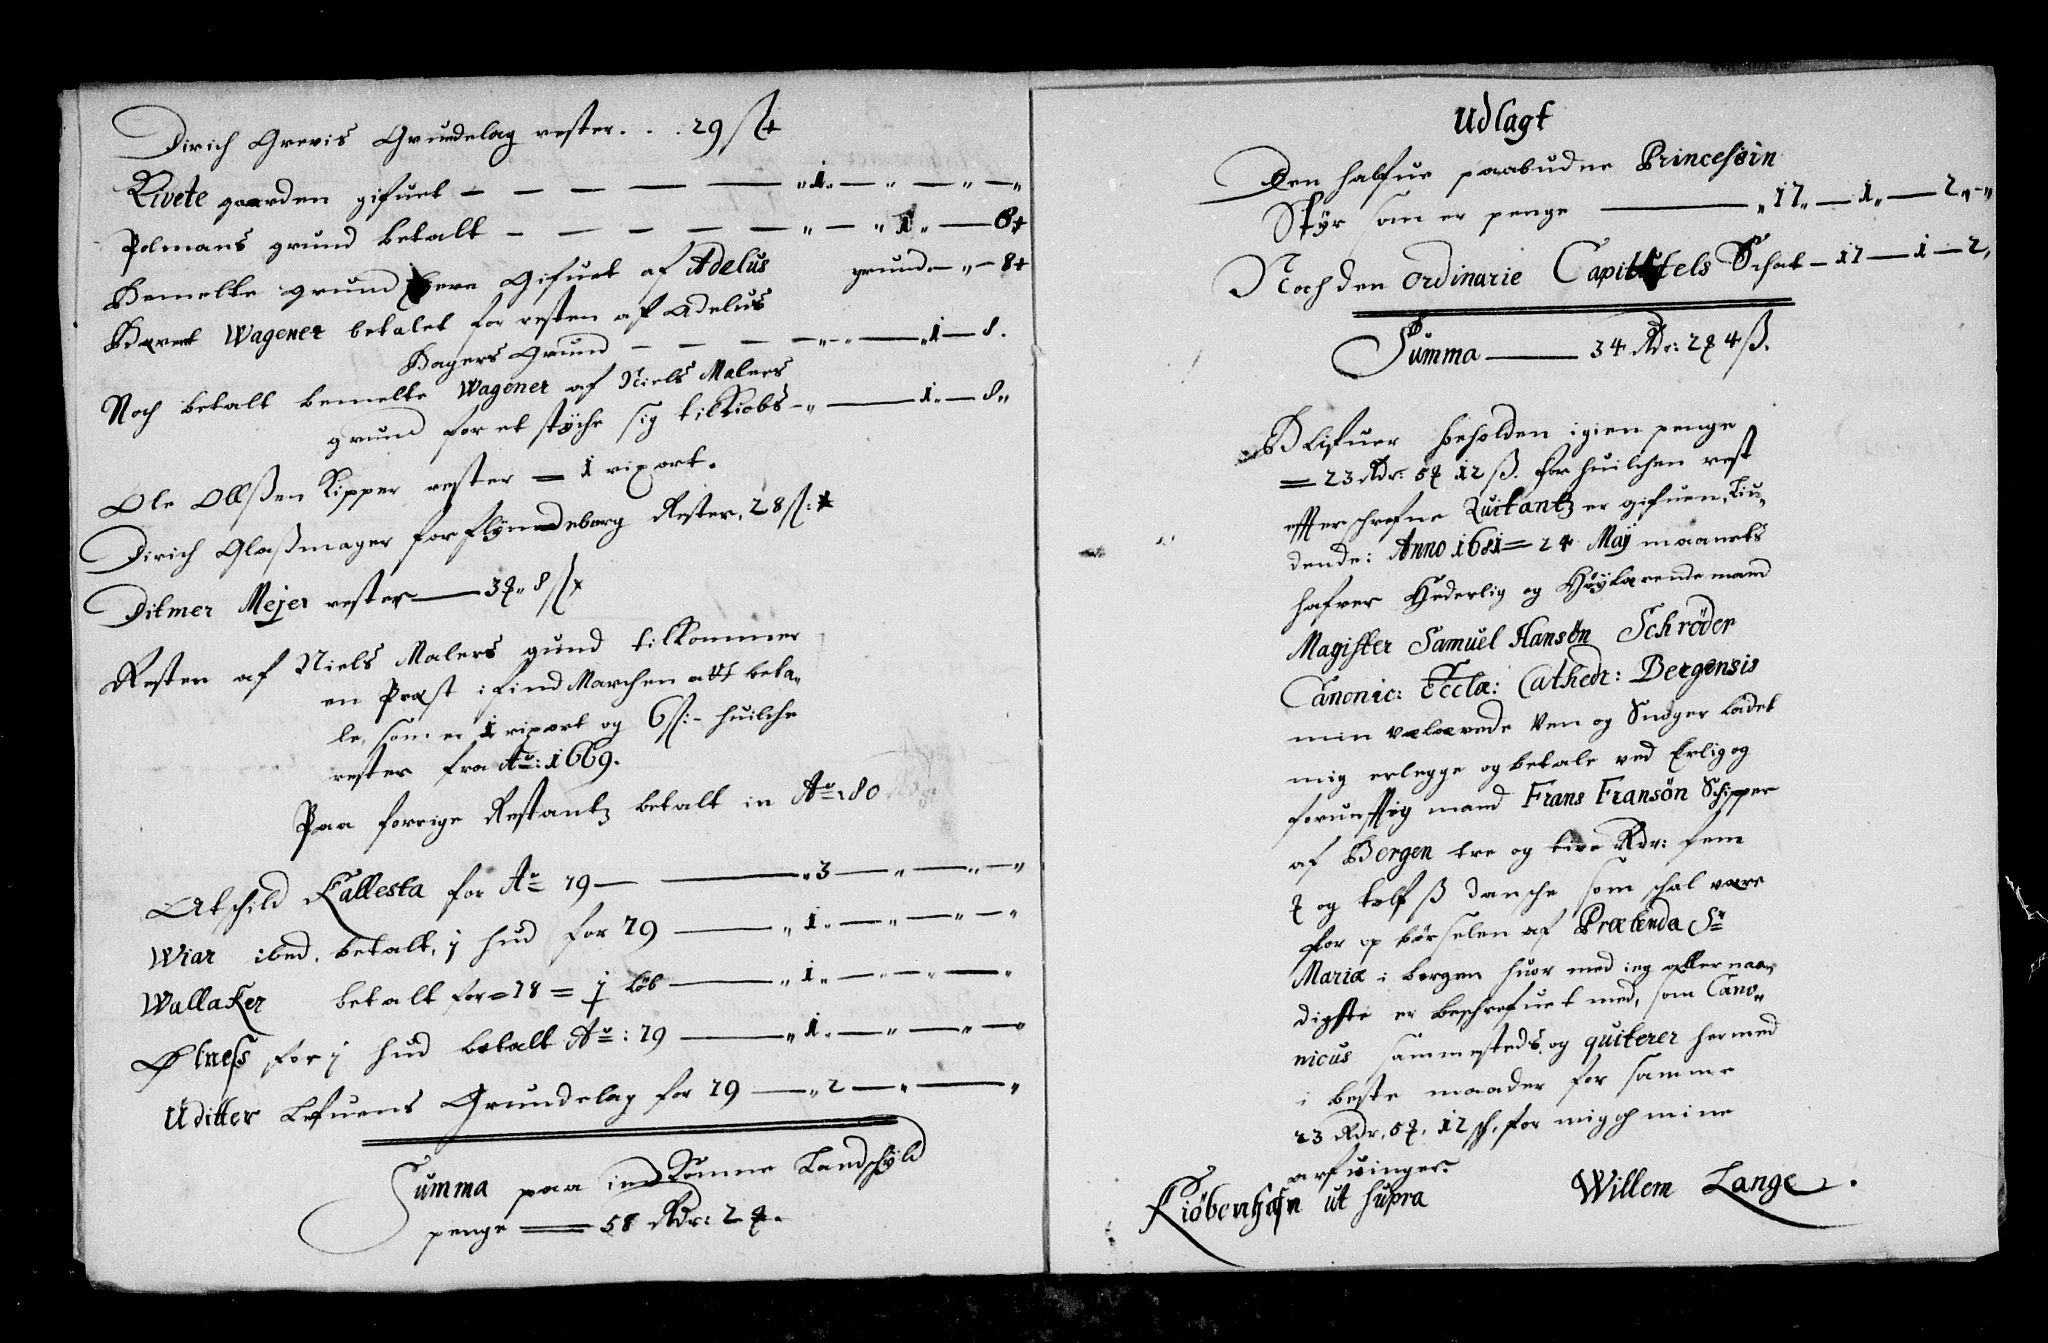 Dirich Grevis Grundelag rester. . . 29 ß +
Kivete gaarden gifuet — — — — — „ 1 „ — „ — „ — „
Polmans grund betalt — — — — — „ — „ 1 „ — 8 +
Bemelte grund gifuet af Adelus grund — „ — 8 +
Wagener betalet for resten af Adelus
Bagers Grund — — — — „ — „ — „ 1 — 8.
Noch betalt bemelte Wagener af Niels Malers
grund for et støche sig tilkiobt — „ — 1 „ — 8 „
Ole Ollßen Kipper rester = 1 rixort.
Dirich Glaßmager for flynndeborg Rester, 28 ß:
Ditmer Mejer rester — 3 ⱦ „ 8 ß
Resten af Niels Malers gund tilkommer
en Præst i find Marchen att beta„
le, som er 1 rixort og 6 ß:- huilche
rester fra Ao: 1669.
Paa forrige Restantz betalt in Ao: 80
Atschild Kallesta for Ao 79 — — „ 3 — „ — „ — „
Wiar ibed. betalt, j hud for 79 — „ 1 „ — „ — „ — „
Wallaker betalt for = 78 = j løb — „ 1 „ — „ — „ — „
Øtness for j hud betalt Ao: 79 — „ 1 „ — „ — „ — „
Uditter Lefuens Grundelag for 79 — „ 2 — „ — „
Summa paa indkomne Landschyld
penge — 58 Rdr: 2 ⱦ.
Udlagt
Den halfue paabudne Princessin
Styr som er penge — „ 17 „ — 1 „ — 2 „ - „
Noch den ordinarie Capittels Schat — 17 — 1 — 2,
Summa — 34 Rdr: 2 ⱦ 4 ß.
Blifuer beholden igien penge
= 23 Rdr: 5 ⱦ 12 ß. for huilchen rest
effterschrefne Quitantz er gifuen, Liu„
dende: Anno 1681 = 24 Maij maanets
hafver Hederlig og Høylærende mand
Magister Samuel Hansøn Schrøder
Canonic: Eccla: Cathedr: Bergensis
min velærede Ven og Suoger ladet
mig erlegge og betale ved Erlig og
fornufftig mand Frans Fransøn Schipper
af Bergen tre og tive Rdr: fem
ⱦ og tolf ß dansche som schal være
for op børselen af Præbenda Sr
Mariæ i bergen huor med ieg aller naa„
digste er beschrefuet med, som Cano„
nicus sammesteds og quiterer hermed
i beste maader for samme
23 Rdr. 5 ⱦ. 12 sh. for mig og mine
arfvinger.
Kiøbenhafn ut supra Willem Lange.